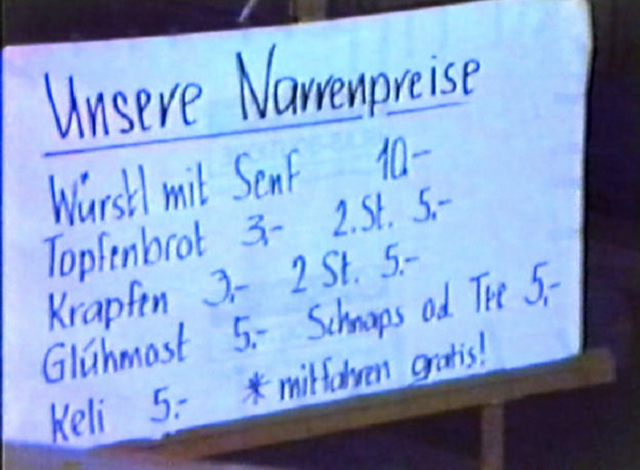 Unsere Narrenpreise
Würstl mit Senf 10.-
Topfenbrot 3.- 2.St. 5.-
Krapfen 3.- 2 St. 5.-
Glühmost 5.- Schnaps od Tee 5.-
Keli 5.- * mitfahren gratis!